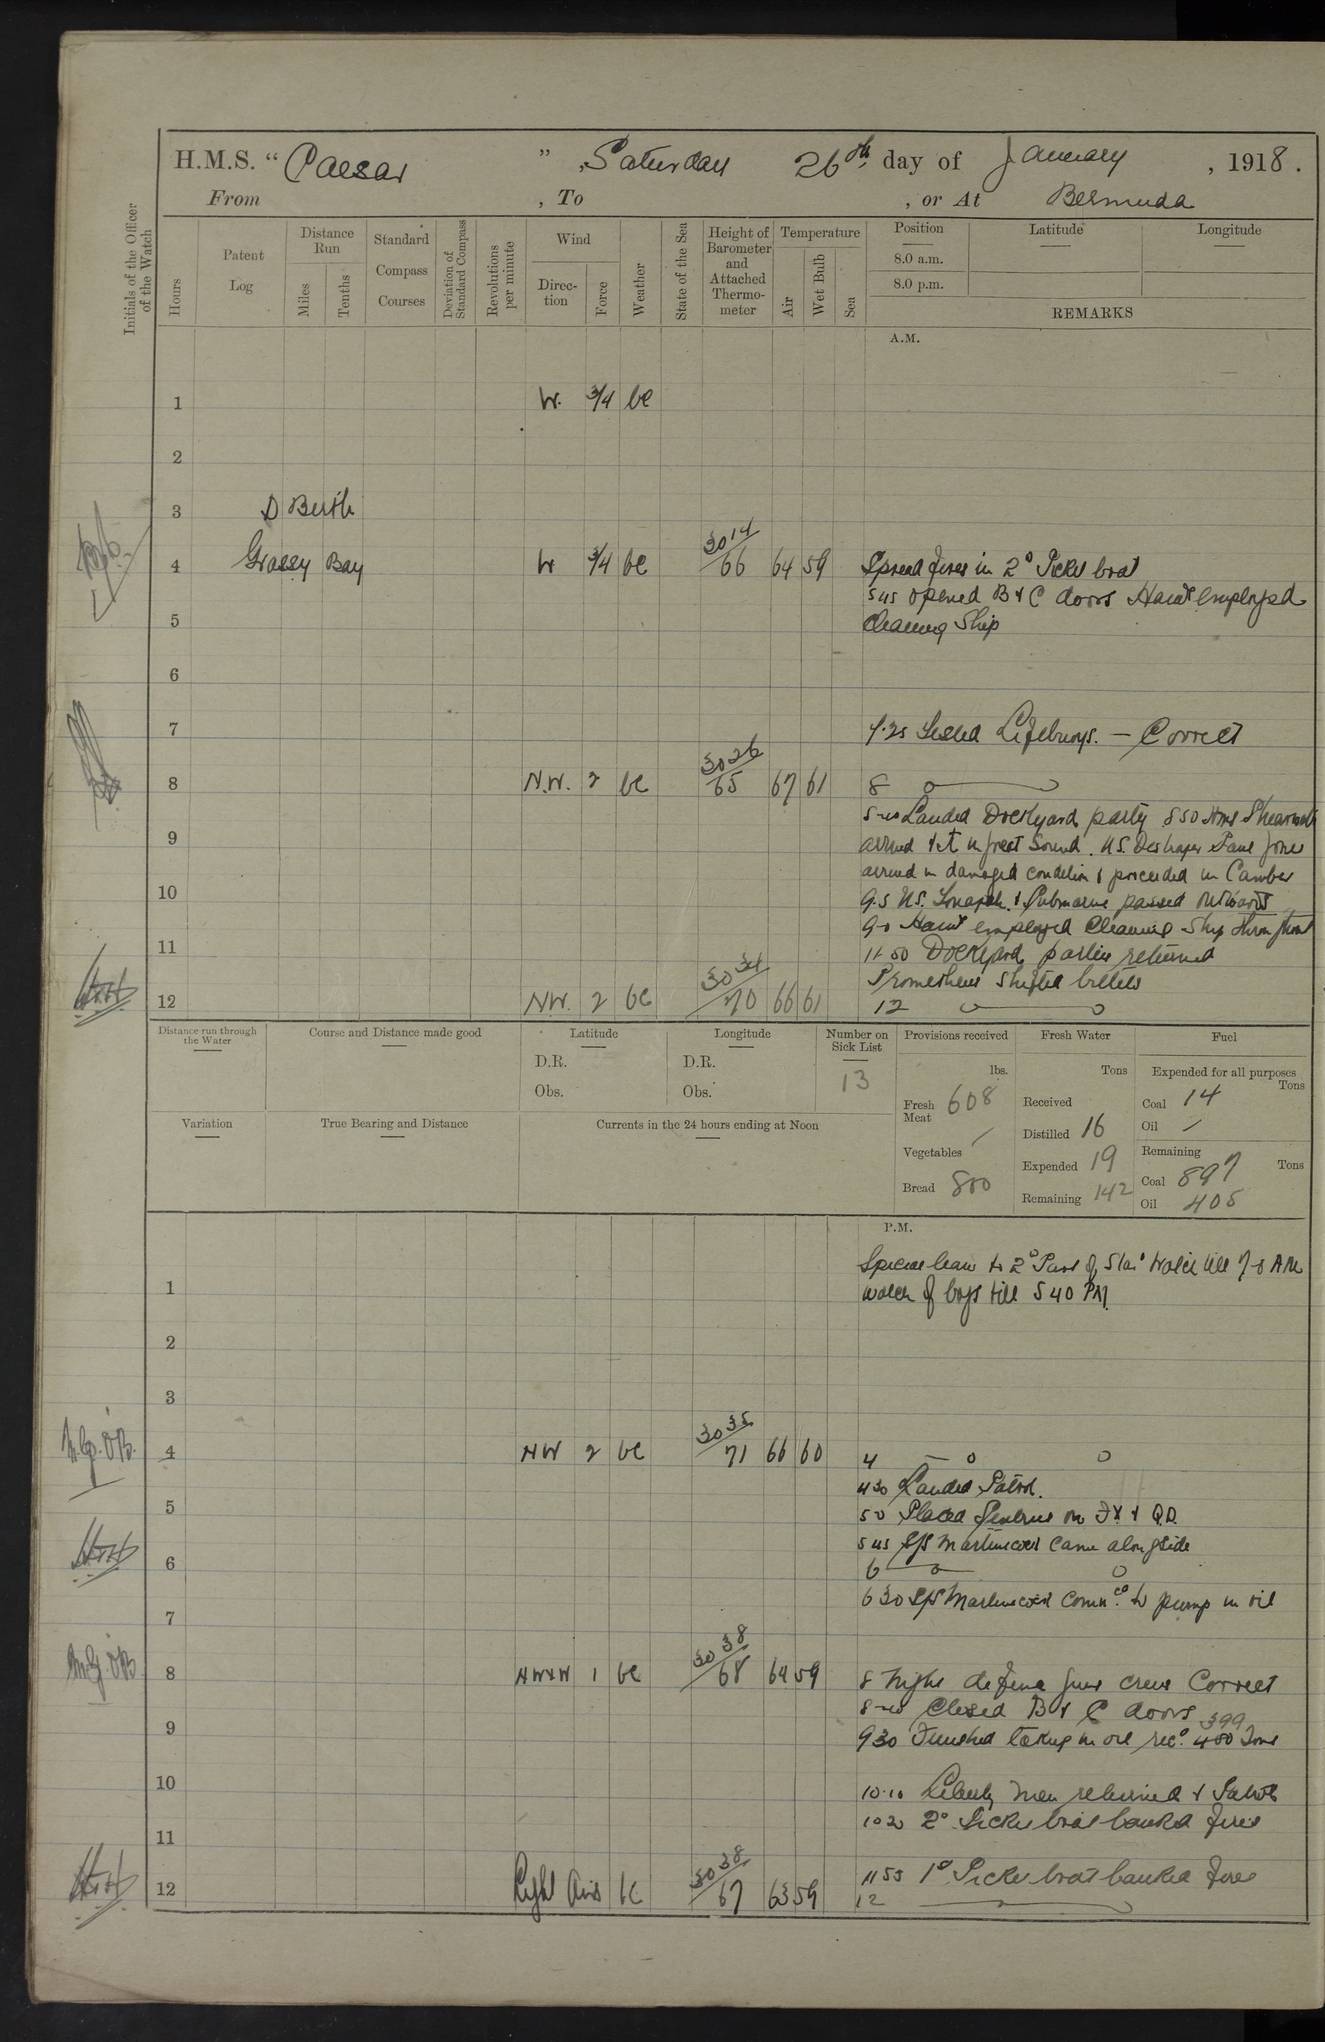 H.M.S. "Caesar", Saturday 26th day of January, 1918.
From , To , or At Bermuda
Initials of the Officer of the Watch
Hours
Patent Log
Distance Run
Miles
Tenths
Standard Compass Courses
Deviation of Standard Compass
Revolutions per minute
Wind
Direction
Force
Weather
State of the Sea
Height of Barometer and Attached Thermometer
Temperature
Air
Wet Bulb
Sea
Position
8.0 a.m.
8.0 p.m.
Latitude
Longitude
REMARKS
A.M.
1 W. 3/4 bc
2
3 D Berth
4 Grassy Bay W 3/4 bc 30 14/66 64 59 Spread fires in 2o Picket boat
5 45 opened B & C doors Hands employed
5
cleaning ship
6
7 7.25 Tested Lifebuoys. — Correct
8 N.W. 2 bc 30 26/65 67 61 8
Landed Dockyard party 8 50 HMS
9
arrived in Great Sound. U.S. Destroyer Paul Jones
arrived in damaged condition & proceeded in Camber
10
9.5 U.S. & Submarine passed outwards
9-0 Hands employed Cleaning ship throughout
11
11-50 Dockyard parties returned
Prometheus shifted billets
12 NW. 2 bc 30 34/70 66 61 12
Distance run through the Water
Course and Distance made good
Latitude
D.R.
Obs.
Longitude
D.R.
Obs.
Number on Sick List
13
Provisions received
lbs.
Fresh Meat 608
Vegetables /
Bread 800
Fresh Water
Tons
Received
Distilled 16
Expended 19
Remaining 142
Fuel
Expended for all purposes
Tons
Coal 14
Oil /
Remaining
Tons
Coal 897
Oil 405
Variation
True Bearing and Distance
Currents in the 24 hours ending at Noon
P.M.
Special leave to 2o Part of Star Watch till 7-0 AM
1
watch of boys till 5 40 PM
2
3
4 NW 2 bc 30 35/71 66 60 4
4 30 Landed Patrol.
5
5 0 Placed Sentries on FX & QD.
5 45 S/S came alongside
6 6
6 30 S/S commcd to pump in oil
7
8 NWxW 1 bc 30 38/68 64 59 8 Night defence guns crews Correct
Closed B & C doors
9
9 30 Finished taking in oil recd. 399 400 Tons
10
10.10 Liberty men returned & Patrol
10 20 2o Picket boat banked fires
11
11 55 1o Picket boat banked fires
12 Light Airs bc 30 38/67 63 59 12